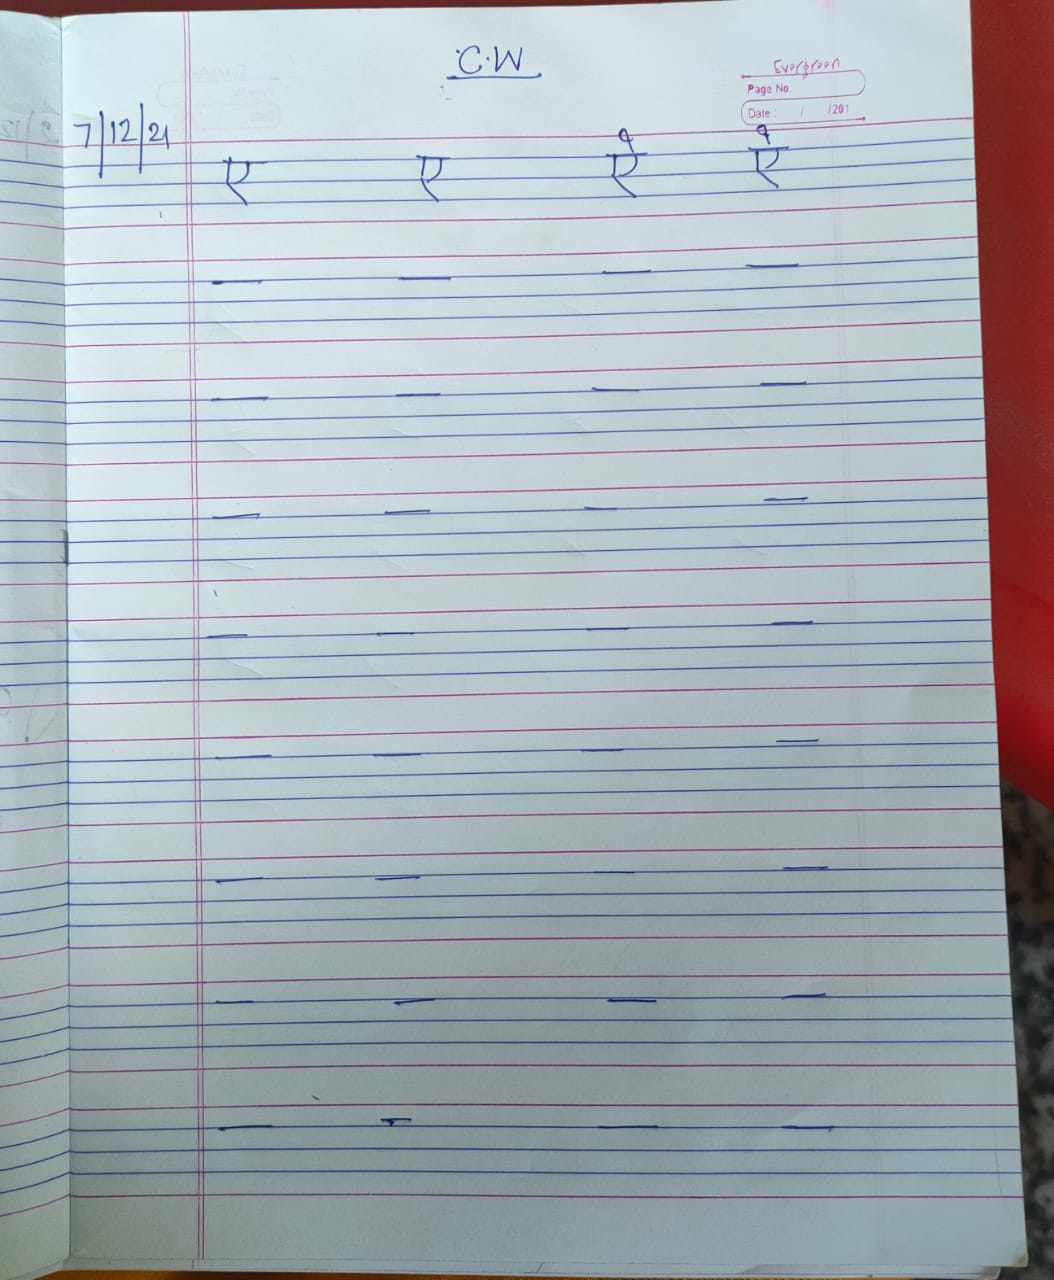 C.W
Evergreen
Page No.
Date : / /201
7/12/21
ए ए ऐ ऐ